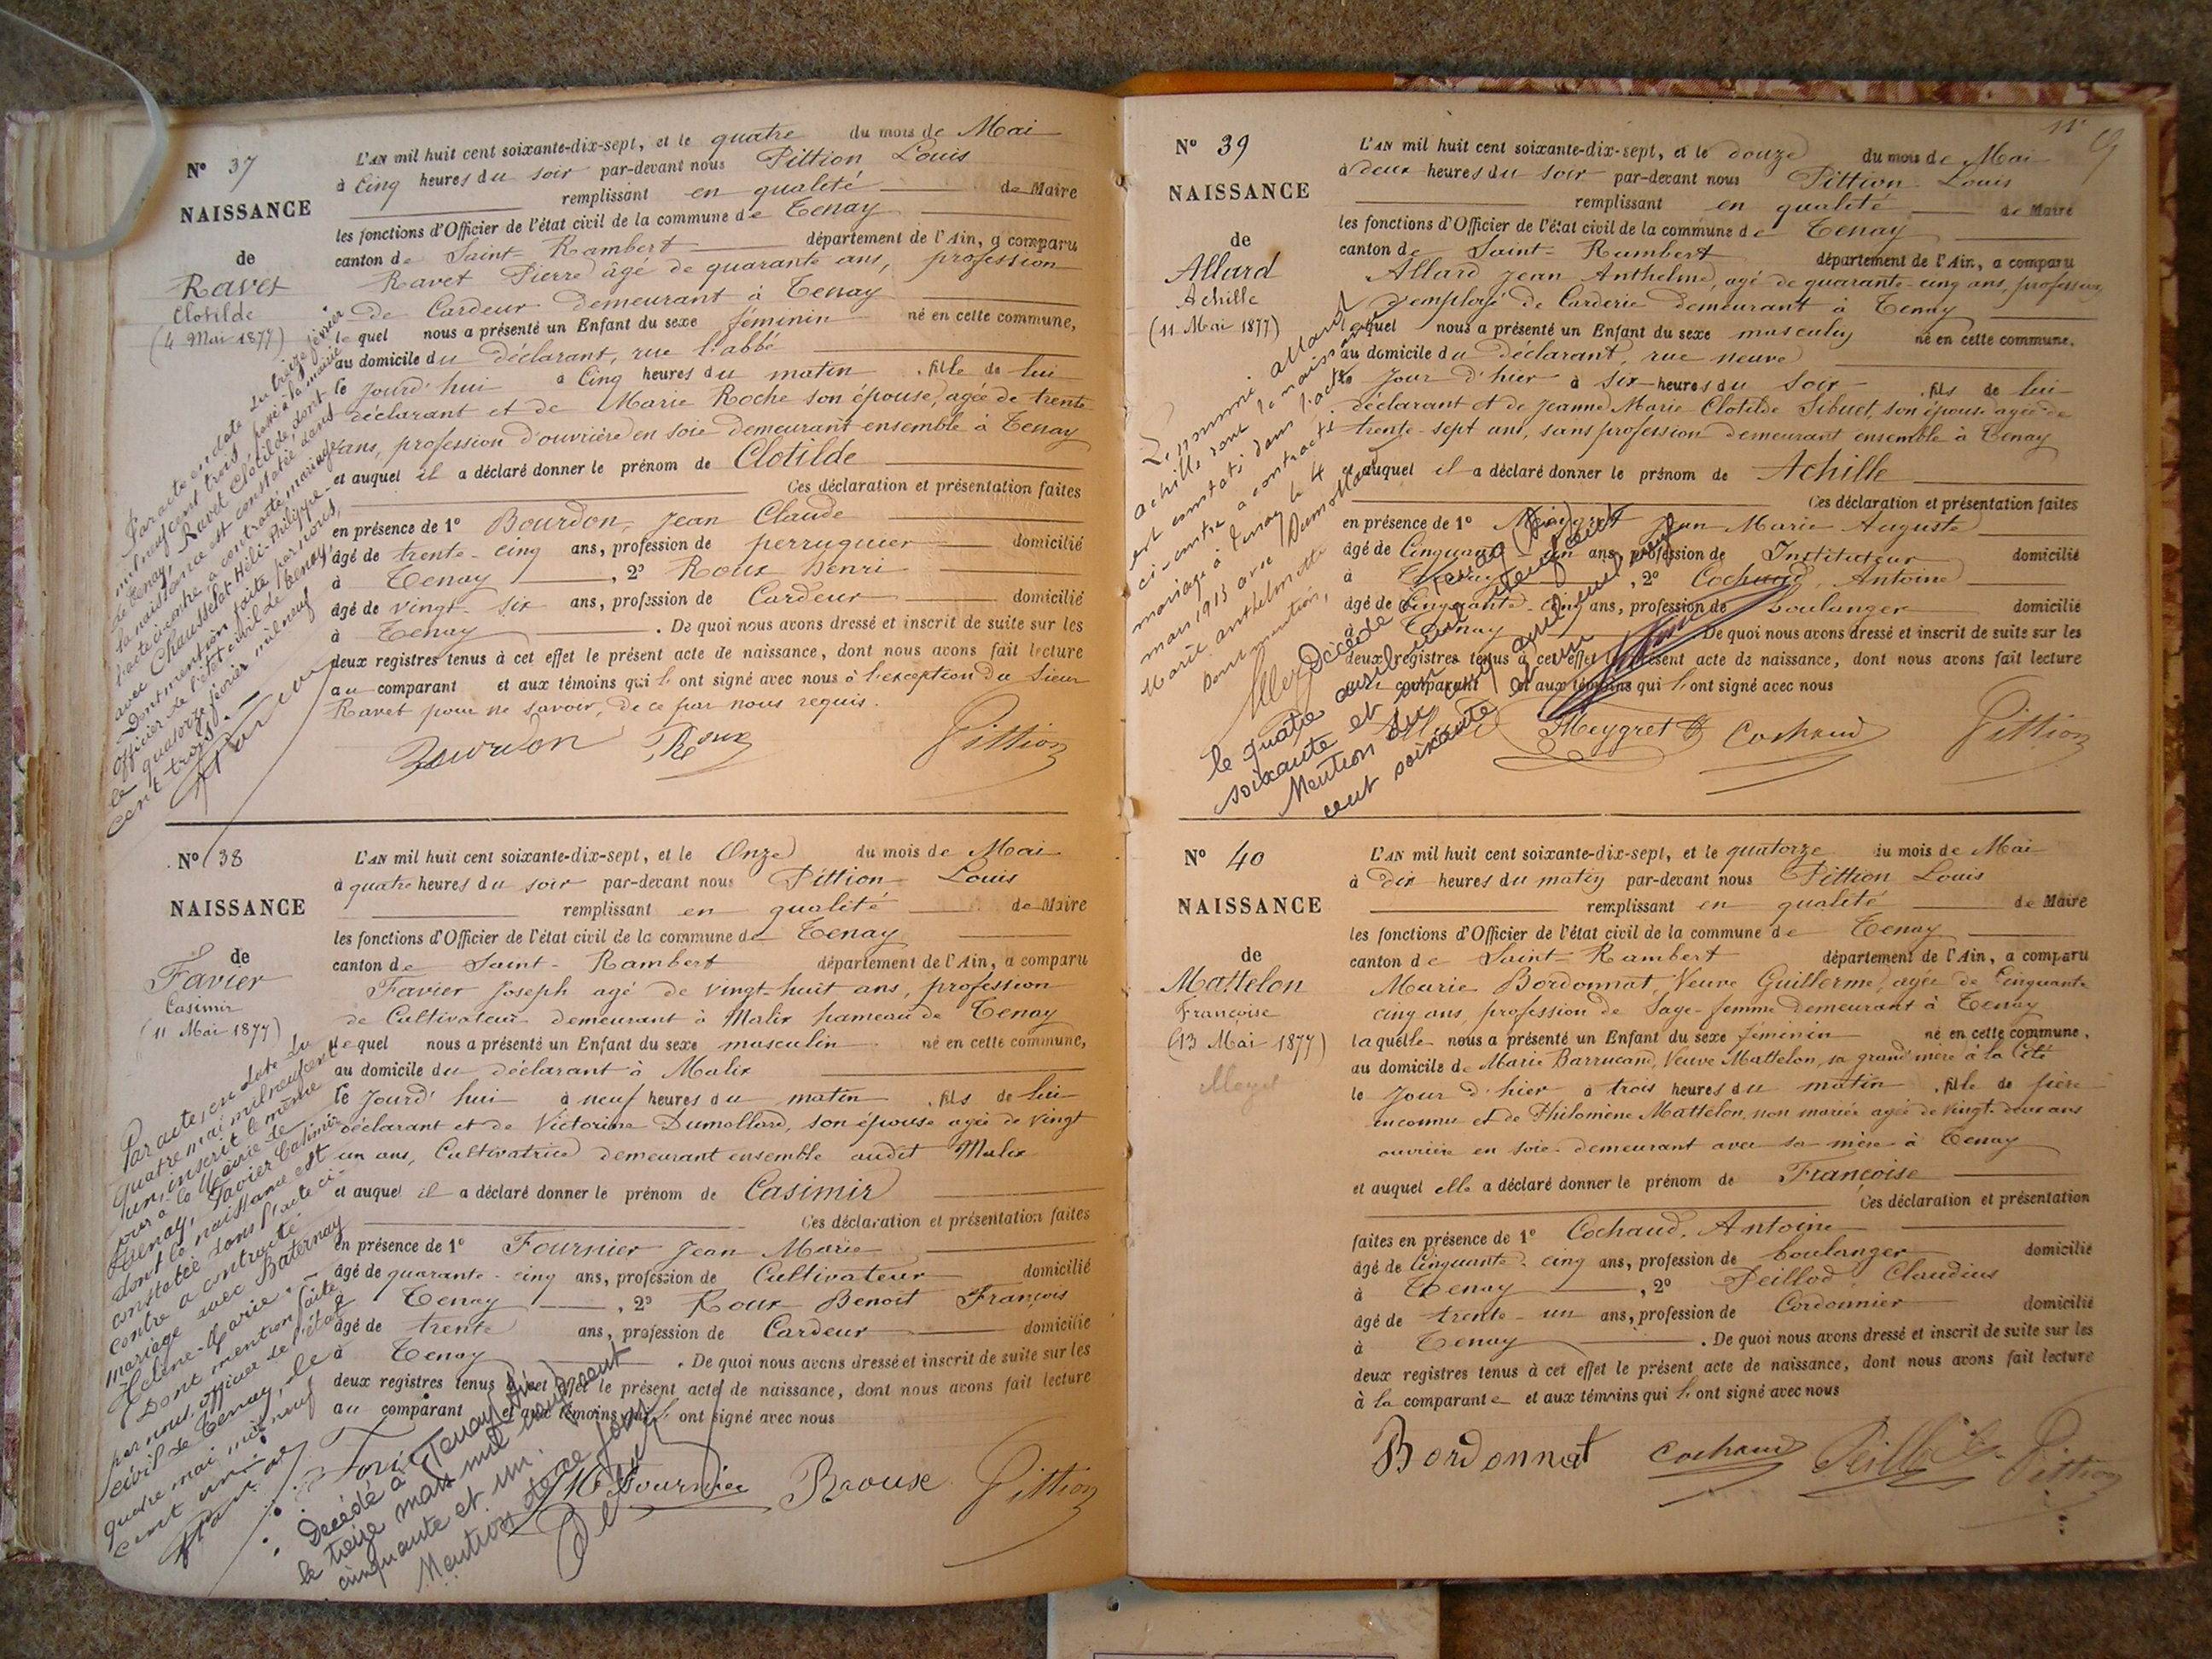 Nº 37
NAISSANCE
de
Ravet
Clotilde
(4 Mai 1877)
L'AN mil huit cent soixante-dix-sept, et le quatre du mois de Mai
à Cinq heures du soir par-devant nous Pittion Louis
remplissant en qualité de Maire
les fonctions d'Officier de l'état civil de la commune de Tenay
canton de Saint-Rambert département de l'Ain, a comparu
Ravet Pierre âgé de quarante ans, profession
de Cardeur demeurant à Tenay
lequel nous a présenté un Enfant du sexe féminin né en cette commune,
au domicile du déclarant, rue l'abbé
le jourd'hui à Cinq heures du matin , fille de lui
déclarant et de Marie Roche son épouse, agée de trente
ans, profession d'ouvrière en soie demeurant ensemble à Tenay
et auquel il a déclaré donner le prénom de Clotilde
Ces déclaration et présentation faites
en présence de 1º Bourdon, Jean Claude
âgé de trente-cinq ans, profession de perruquier domicilié
à Tenay , 2º Roux Henri
âgé de vingt-six ans, profession de Cardeur domicilié
à Tenay . De quoi nous avons dressé et inscrit de suite sur les
deux registres tenus à cet effet le présent acte de naissance, dont nous avons fait lecture
au comparant et aux témoins qui l'ont signé avec nous à l'exception du sieur
Ravet pour ne savoir, de ce par nous requis.
Bourdon Roux Pittion
Par acte en date du treize février
mil neuf cent trois, passé à la mairie
de Tenay, Ravet Clotilde, dont
la naissance est constatée dans
l'acte ci-contre a contracté mariage
avec Chausselat Héli-Philippe.
Dont mention faite par nous,
officier de l'état civil de Tenay,
le quatorze février mil neuf
cent trois.
Nº 38
NAISSANCE
de
Favier
Casimir
(11 Mai 1877)
L'AN mil huit cent soixante-dix-sept, et le Onze du mois de Mai
à quatre heures du soir par-devant nous Pittion Louis
remplissant en qualité de Maire
les fonctions d'Officier de l'état civil de la commune de Tenay
canton de Saint-Rambert département de l'Ain, a comparu
Favier Joseph agé de vingt-huit ans, profession
de Cultivateur demeurant à Malix hameau de Tenay
lequel nous a présenté un Enfant du sexe masculin né en cette commune,
au domicile du déclarant à Malix
le jourd'hui à neuf heures du matin , fils de lui
déclarant et de Victorine Dumollard, son épouse agée de vingt
un ans, Cultivatrice demeurant ensemble audit Malix
et auquel il a déclaré donner le prénom de Casimir
Ces déclaration et présentation faites
en présence de 1º Fournier Jean Marie
âgé de quarante-cinq ans, profession de Cultivateur domicilié
à Tenay , 2º Roux Benoit François
âgé de trente ans, profession de Cardeur domicilié
à Tenay . De quoi nous avons dressé et inscrit de suite sur les
deux registres tenus à cet effet le présent acte de naissance, dont nous avons fait lecture
au comparant et aux témoins qui l'ont signé avec nous
Fournier Raoux Pittion
Par acte, en date du
quatre mai mil neuf cent
un, inscrit le même
jour à la Mairie de
Tenay, Favier Casimir
dont la naissance est
constatée dans l'acte ci-
contre a contracté
mariage avec Baternay
Hélène-Marie.
Dont mention faite
par nous, officier de l'état
civil de Tenay, le
quatre mai mil neuf
cent un.
Décédé à Tenay (Ain)
le treize mars mil neuf cent
cinquante et un.
Mention de ce jour
Nº 39
NAISSANCE
de
Allard
Achille
(11 Mai 1877)
L'AN mil huit cent soixante-dix-sept, et le douze du mois de Mai
à deux heures du soir par-devant nous Pittion Louis
remplissant en qualité de Maire
les fonctions d'Officier de l'état civil de la commune de Tenay
canton de Saint-Rambert département de l'Ain, a comparu
Allard Jean Anthelme, agé de quarante-cinq ans, profession
d'employé de Carderie demeurant à Tenay
lequel nous a présenté un Enfant du sexe masculin né en cette commune.
au domicile du déclarant, rue neuve
le jour d'hier à six heures du soir , fils de lui
déclarant et de Jeanne Marie Clotilde Sibuet, son épouse agée de
trente-sept ans, sans profession demeurant ensemble à Tenay
et auquel il a déclaré donner le prénom de Achille
Ces déclaration et présentation faites
en présence de 1º Meygret Jean Marie Auguste
âgé de Cinquante-un ans, profession de Instituteur domicilié
à Tenay , 2º Cochaud, Antoine
âgé de Cinquante-cinq ans, profession de boulanger domicilié
à Tenay De quoi nous avons dressé et inscrit de suite sur les
deux registres tenus à cet effet le présent acte de naissance, dont nous avons fait lecture
au comparant et aux témoins qui l'ont signé avec nous
Allard Meygret Cochaud Pittion
Le nommé Allard
Achille dont la naissance
est constatée dans l'acte
ci-contre a contracté
mariage à Tenay le 4
mars 1913 avec Dumollard
Marie Anthelmette
Dont mention,
Décédé à Tenay (Ain)
le quatre avril mil neuf cent
soixante et un
Mention du cinq avril mil neuf
cent soixante et un
Nº 40
NAISSANCE
de
Mattelon
Françoise
(13 Mai 1877)
L'AN mil huit cent soixante-dix-sept, et le quatorze du mois de Mai
à Dix heures du matin par-devant nous Pittion Louis
remplissant en qualité de Maire
les fonctions d'Officier de l'état civil de la commune de Tenay
canton de Saint-Rambert département de l'Ain, a comparu
Marie Bordonnat, Veuve Guillerme, agée de Cinquante
cinq ans, profession de Sage-femme demeurant à Tenay
laquelle nous a présenté un Enfant du sexe féminin né en cette commune,
au domicile de Marie Barrucand, Veuve Mattelon, sa grand'mère à la Cité
le jour d'hier à trois heures du matin , fille de père
inconnu et de Philomène Mattelon, non mariée agée de vingt-deux ans
ouvrière en soie demeurant avec sa mère à Tenay
et auquel elle a déclaré donner le prénom de Françoise
Ces déclaration et présentation
faites en présence de 1º Cochaud, Antoine
âgé de Cinquante-cinq ans, profession de boulanger domicilié
à Tenay , 2º Peillod Claudius
âgé de trente-un ans, profession de Cordonnier domicilié
à Tenay . De quoi nous avons dressé et inscrit de suite sur les
deux registres tenus à cet effet le présent acte de naissance, dont nous avons fait lecture
à la comparante et aux témoins qui l'ont signé avec nous
Bordonnat Cochaud Peillod Pittion